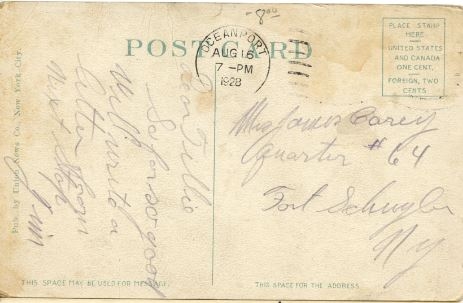 -8⁰⁰
POST CARD
OCEANPORT
AUG 16
7-PM
1928
PLACE STAMP
HERE
UNITED STATES
AND CANADA
ONE CENT.
FOREIGN, TWO
CENTS
Pub. by Union News Co., New York City.
Dear Tillie
So far so good
Will write a
letter
next
Jim
Mrs James Carey
Quarter #64
Fort Schuyler
NY
THIS SPACE MAY BE USED FOR MESSAGE.
THIS SPACE FOR THE ADDRESS.